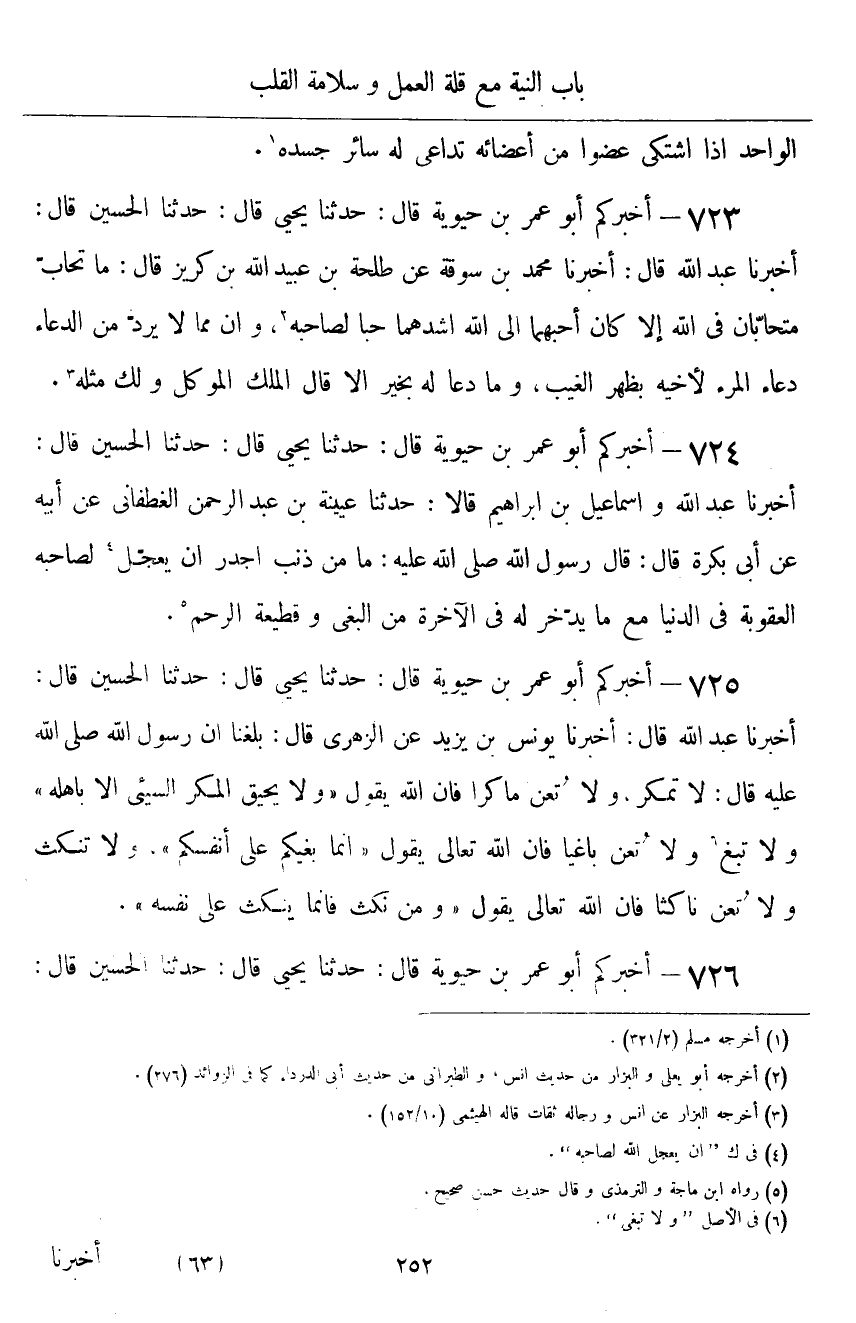 باب النية مع قلة العمل و سلامة القلب
الواحد اذا اشتكى عضوا من أعضائه تداعى له سائر جسده١ .
٧٢٣ – أخبركم أبو عمر بن حيوية قال : حدثنا يحيى قال : حدثنا الحسين قال :
أخبرنا عبد الله قال : أخبرنا محمد بن سوقة عن طلحة بن عبيد الله بن كريز قال : ما تحابّ
متحابّان فى الله إلا كان أحبهما الى الله اشدهما حبا لصاحبه٢، و ان مما لا يردّ من الدعاء
دعاء المرء لأخيه بظهر الغيب، و ما دعا له بخير الا قال الملك الموكل و لك مثله٣ .
٧٢٤ – أخبركم أبو عمر بن حيوية قال : حدثنا يحيى قال : حدثنا الحسين قال :
أخبرنا عبد الله و اسماعيل بن ابراهيم قالا : حدثنا عيينة بن عبد الرحمن الغطفانى عن أبيه
عن أبى بكرة قال : قال رسول الله صلى الله عليه : ما من ذنب اجدر ان يعجّل٤ لصاحبه
العقوبة فى الدنيا مع ما يدّخر له فى الآخرة من البغى و قطيعة الرحم٥ .
٧٢٥ – أخبركم أبو عمر بن حيوية قال : حدثنا يحيى قال : حدثنا الحسين قال :
أخبرنا عبد الله قال : أخبرنا يونس بن يزيد عن الزهرى قال : بلغنا ان رسول الله صلى الله
عليه قال : لا تمكر . و لا تُعن ماكرا فان الله يقول « و لا يحيق المكر السيئى الا باهله »
و لا تبغ٦ و لا تُعن باغيا فان الله تعالى يقول « انما بغيكم على أنفسكم » . و لا تنكث
و لا تُعن ناكثا فان الله تعالى يقول « و من نكث فانما ينكث على نفسه » .
٧٢٦ – أخبركم أبو عمر بن حيوية قال : حدثنا يحيى قال : حدثنا الحسين قال :
(١) أخرجه مسلم (٣٢١/٢) .
(٢) أخرجه أبو يعلى و البزار من حديث انس، و الطبرانى من حديث أبى الدرداء كما فى الزوائد (٢٧٦) .
(٣) أخرجه البزار عن انس و رجاله ثقات قاله الهيثمى (١٥٢/١٠) .
(٤) فى ك ”ان يعجل الله لصاحبه“ .
(٥) رواه ابن ماجة و الترمذى و قال حديث حسن صحيح .
(٦) فى الأصل ”و لا تبغى“ .
٢٥٢ (٦٣) أخبرنا